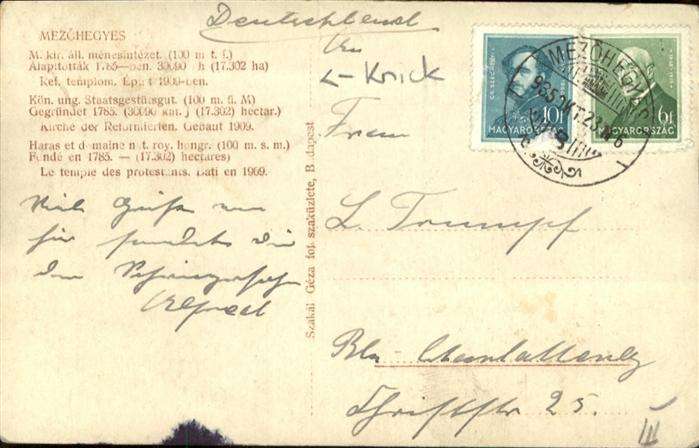 MEZŐHEGYES
M. kir. áll. ménesintézet. (100 m t. f.)
Alapították 1785-ben. 30000 h (17.302 ha)
Ref. templom. Épült 1909-ben.
Kön. ung. Staatsgestütsgut. (100 m. ü. M)
Gegründet 1785. (30000 km. j (17.302) hectar.)
Kirche der Reformierten. Gebaut 1909.
Haras et domaine n t. roy. hongr. (100 m. s. m.)
Fondé en 1785. — (17.302) hectares)
Le temple des protestants. Bati en 1909.
Viele Grüße
Alfred
Szakál Géza fot. szaküzlete, Budapest
Deutschland
An
← Knick
Frau
L. Trumpf
Bln Charlottenbg
25.
III
10f
MAGYARORSZÁG
6f
MAGYARORSZÁG
MEZŐHEGYES